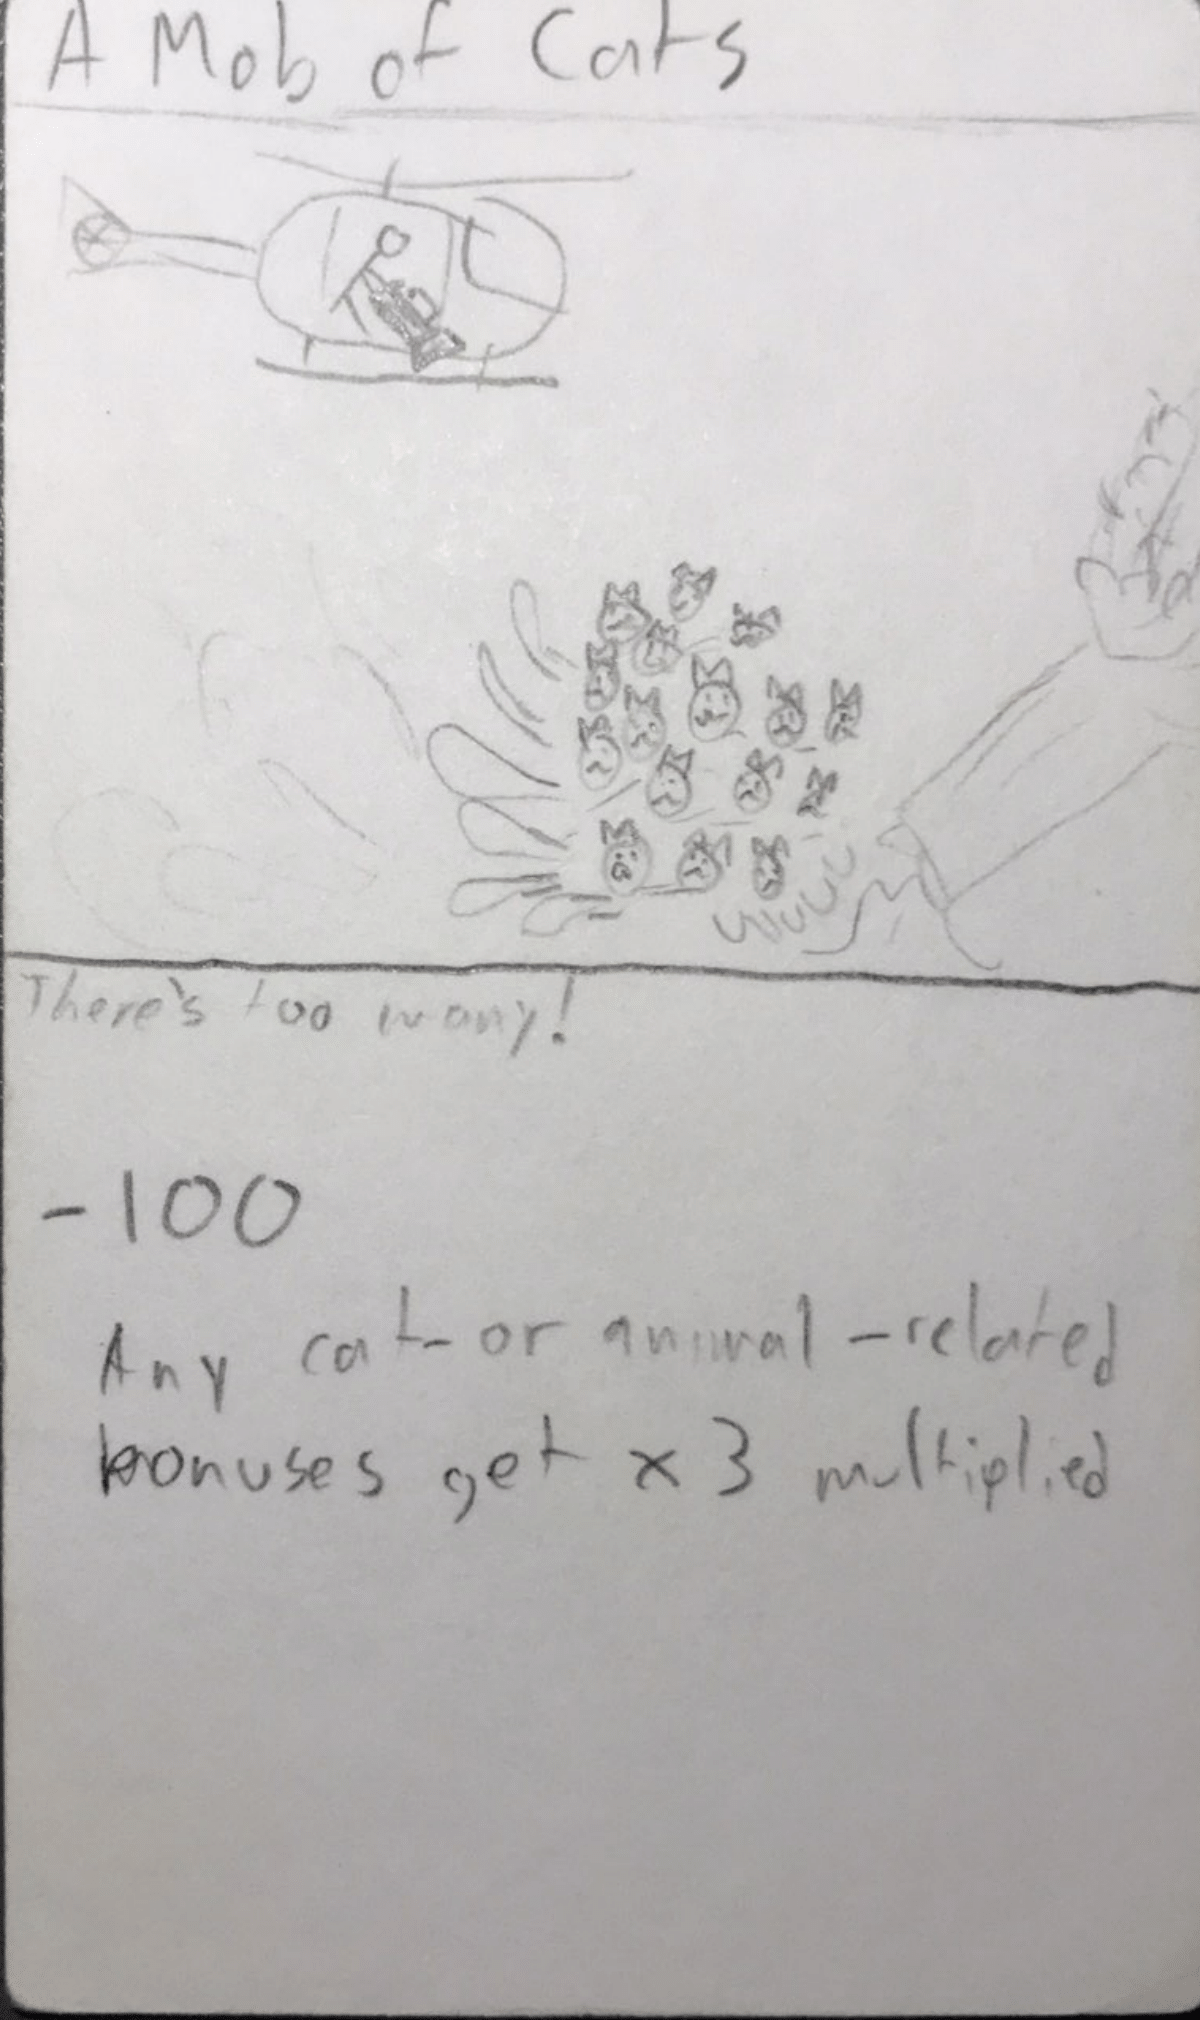 A Mob of Cats
There's too many!
-100
Any cat- or animal-related
bonuses get x3 multiplied